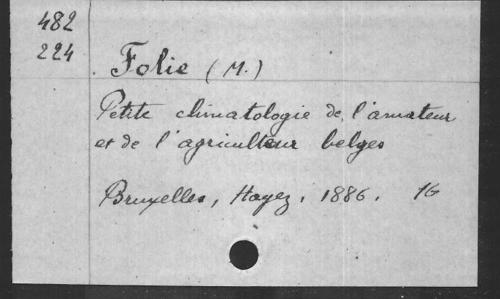 482
224
Folie (M.)
Petite climatologie de l'amateur
et de l'agriculteur belges
Bruxelles, Hayez. 1886. 16